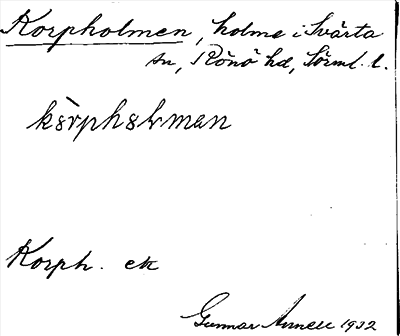 Korpholmen, holme i Svärta
sn, Rönö hd, Sörml. l.
kòrphɷlman
Korph. ek
Gunnar Annell 1932